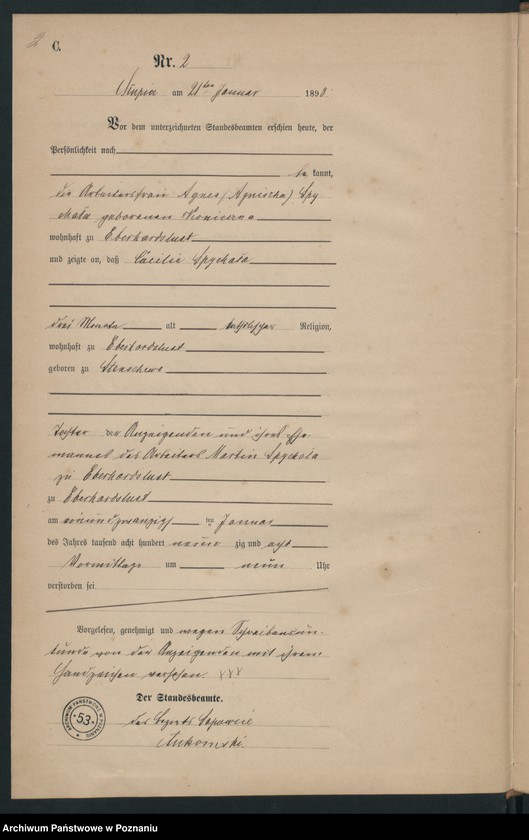 2 C.
Nr. 2
am 21ten Januar 1898
Vor dem unterzeichneten Standesbeamten erschien heute, der
Persönlichkeit nach
be kannt,
die Arbeiterfrau Agnes (Agnischa) Spy
chala geborenen
wohnhaft zu Eberhardslust
und zeigte an, daß Cäcilie Spychala
drei Monate alt katholischer Religion,
wohnhaft zu Eberhardslust
geboren zu Stenschewo
Tochter der Anzeigenden und ihres Ehe
mannes des Arbeiters Martin Spychala
zu Eberhardslust
zu Eberhardslust
am einundzwanzigsten ten Januar
des Jahres tausend acht hundert neun zig und acht
Vormittags um neun Uhr
verstorben sei
Vorgelesen, genehmigt und wegen Schreibensun-
kunde von der Anzeigenden mit ihrem
Handzeichen versehen. XXX
Der Standesbeamte.
ARCHIWUM PAŃSTWOWE W POZNANIU
53
Archiwum Państwowe w Poznaniu